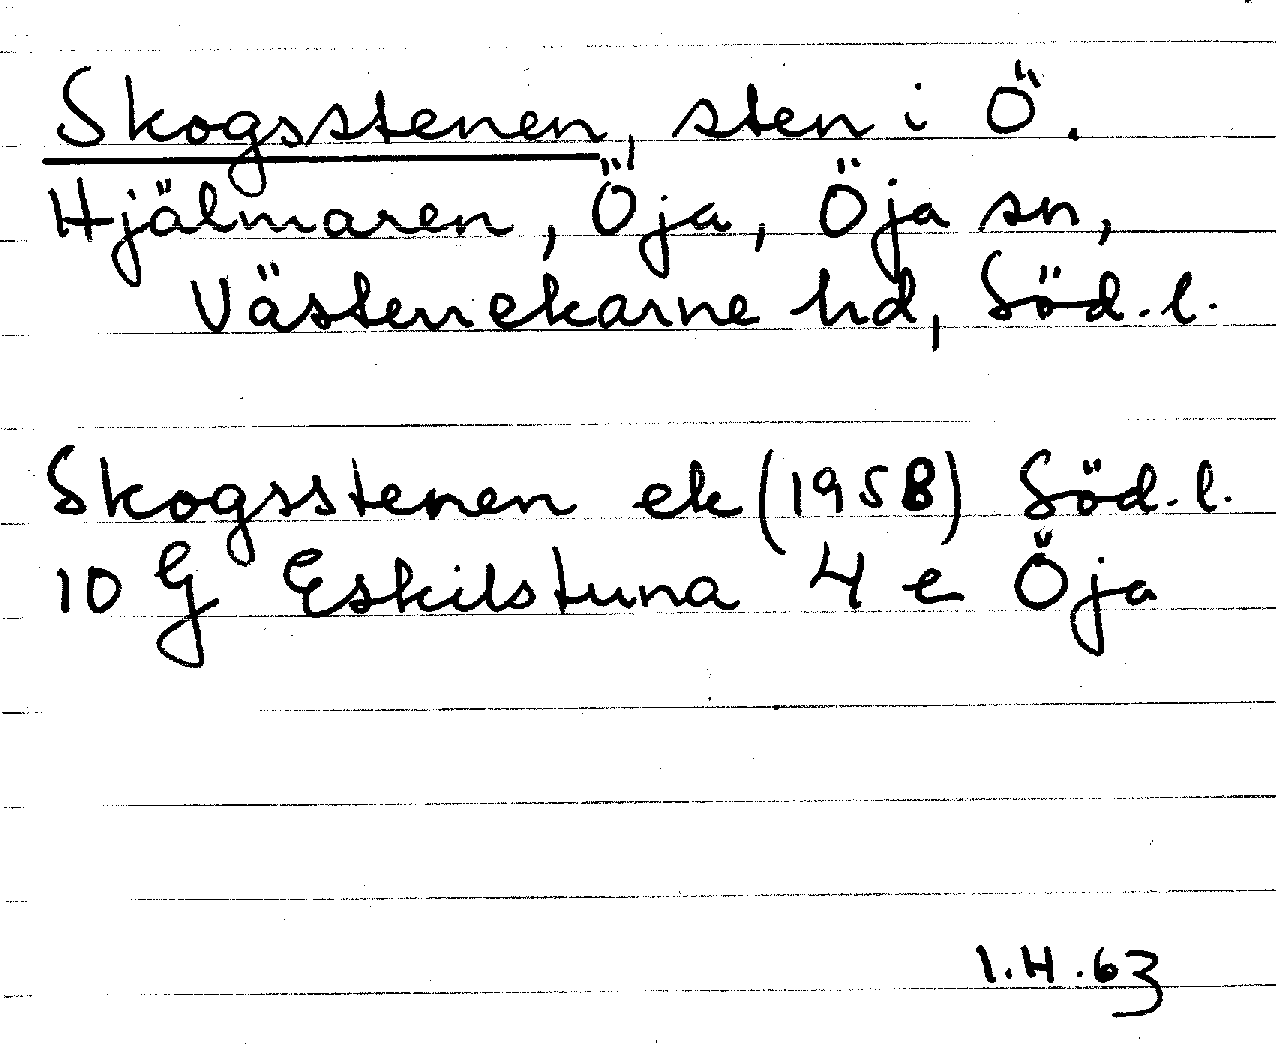 Skogsstenen, sten i Ö.
Hjälmaren, Öja, Öja sn,
Västerrekarne hd, Söd. l.
Skogsstenen ek (1958) Söd. l.
10 G Eskilstuna 4 e Öja
I.H.63